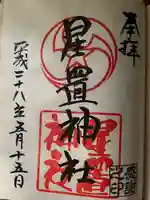 奉拝
星置神社
星置
神社
平成二十八年五月十五日